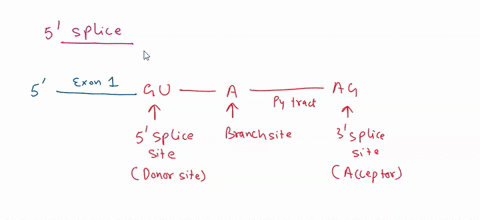 5' splice
5' Exon 1 GU A Py tract AG
5' splice site (Donor site)
Branchsite
3' splice site (Acceptor)